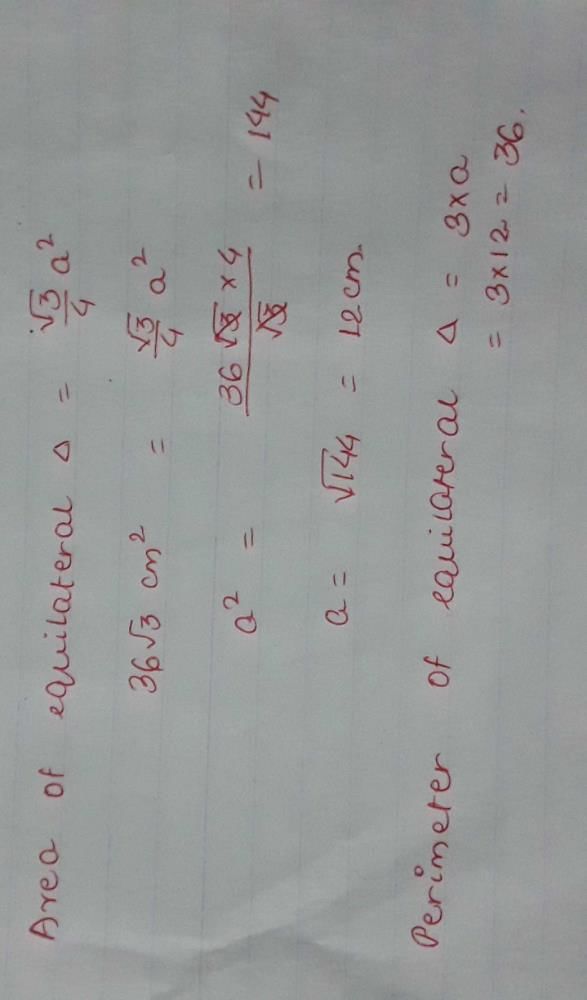 Area of equilateral Δ = √3/4 a²
36√3 cm² = √3/4 a²
a² = 36√3 × 4/√3 = 144
a = √144 = 12 cm.
Perimeter of equilateral Δ = 3×a
= 3×12 = 36.